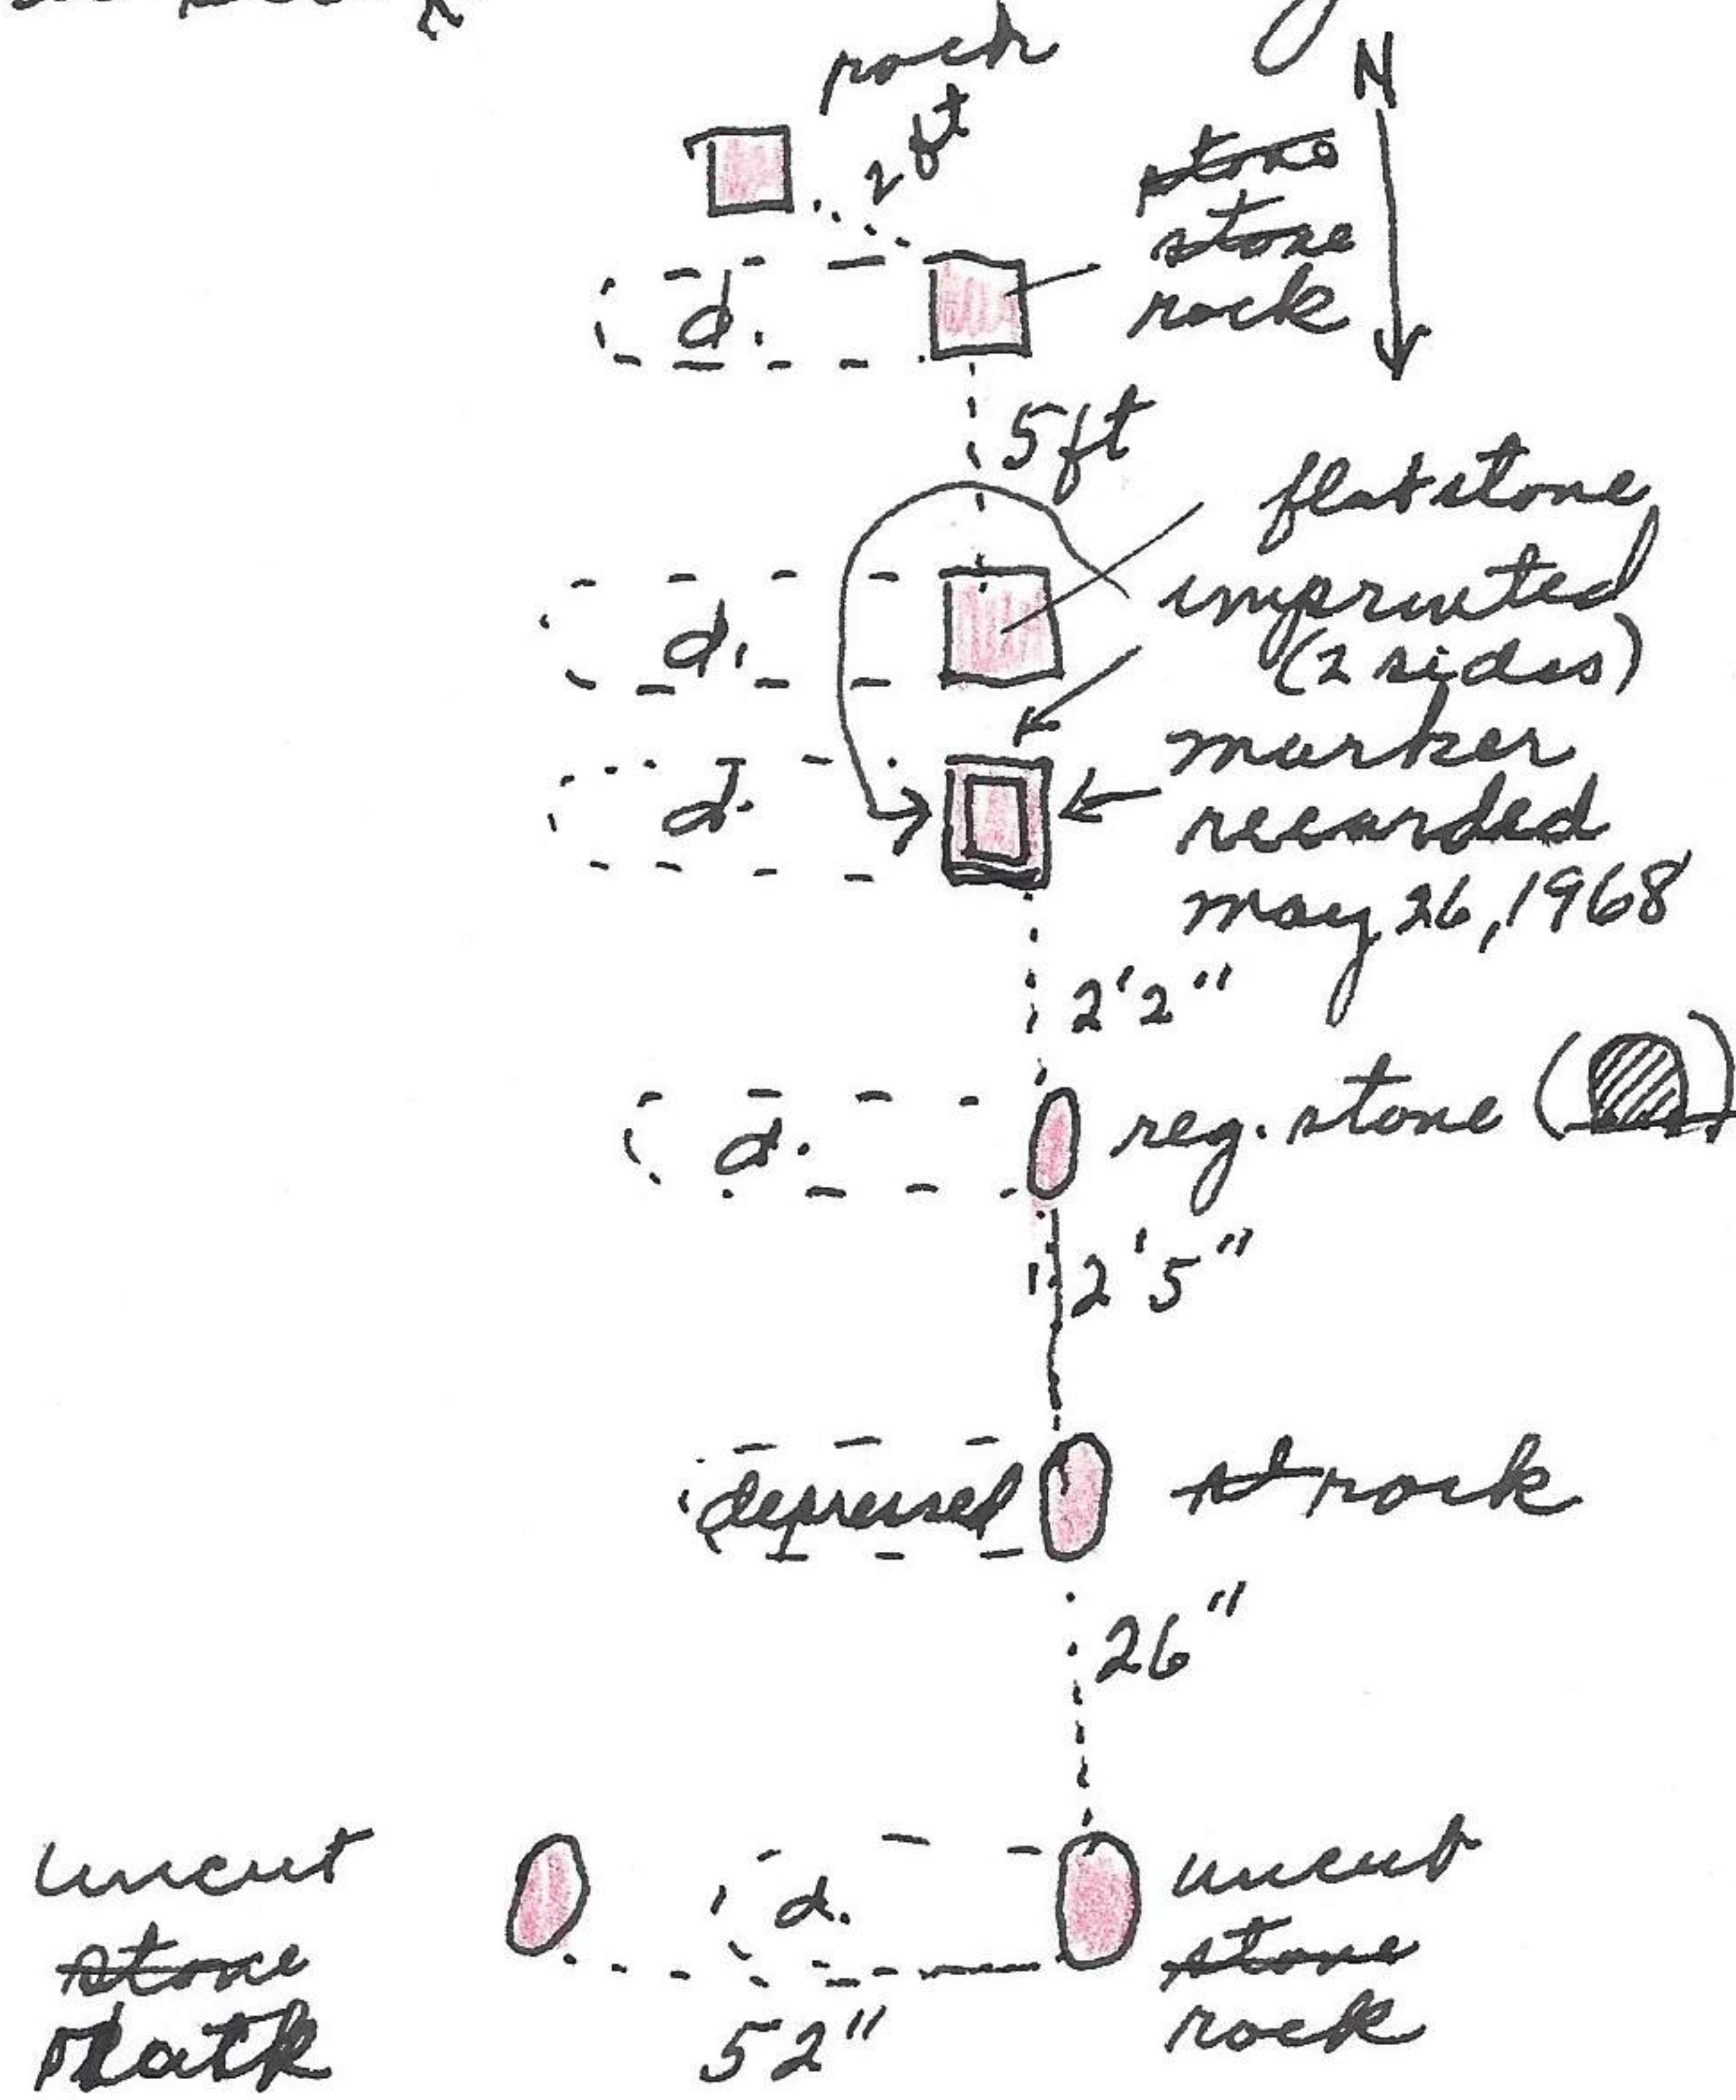 rock
N
2 ft
stone
stone
rock
d.
5 ft
flat stone
imprinted
(2 sides)
d.
marker
recorded
may 26, 1968
d.
2'2"
reg. stone
d.
2'5"
depressed
st rock
26"
uncut
stone
d.
uncut
stone
rock
52"